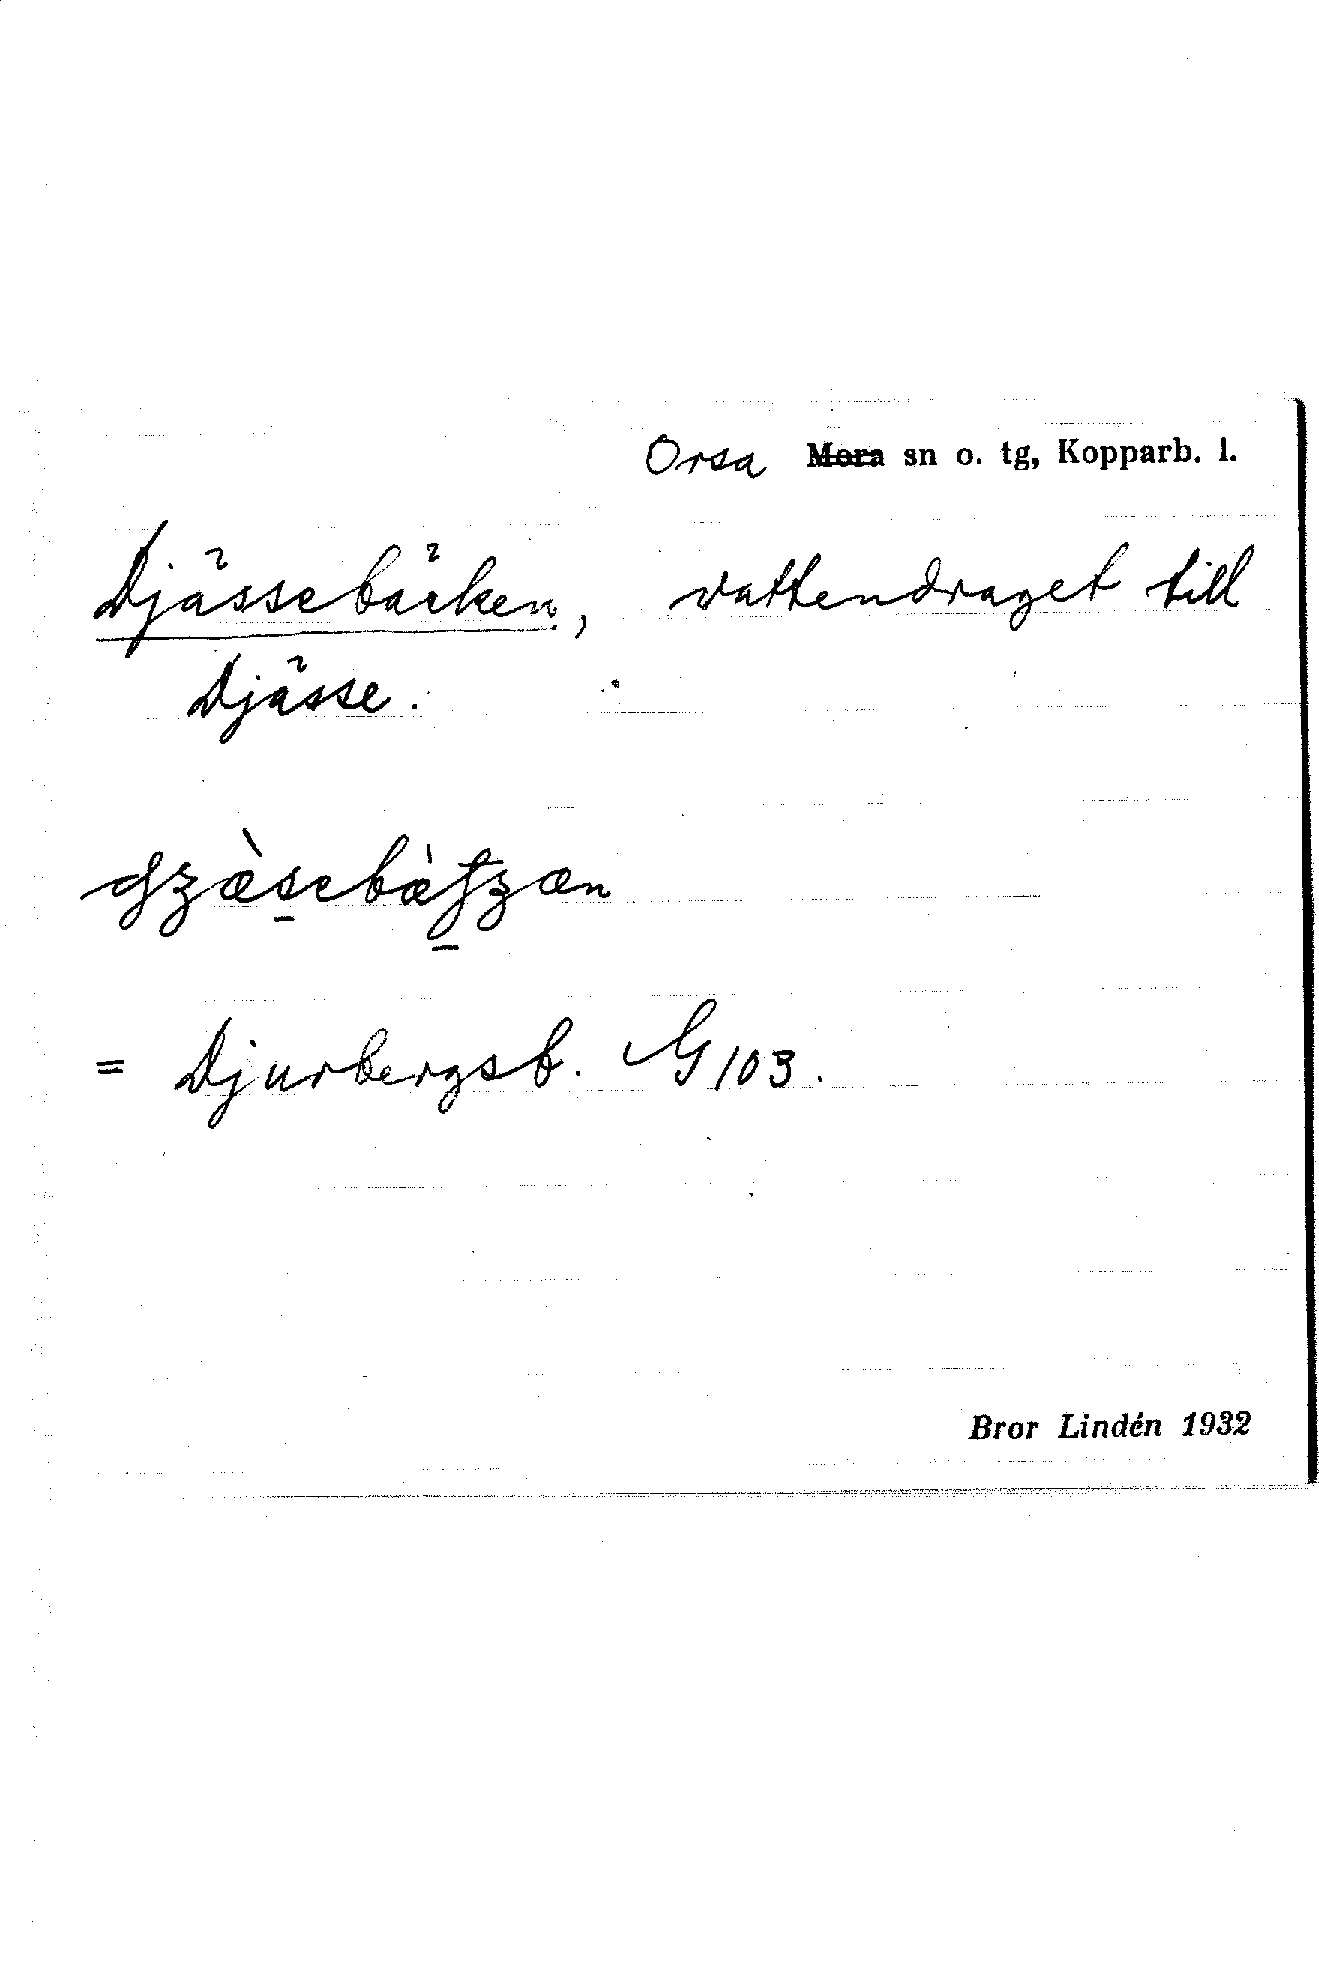 Orsa Mora sn o. tg, Kopparb. l.
Djässebäcken, vattendraget till
Djässe.
= Djurbergsb. G 103.
Bror Lindén 1932